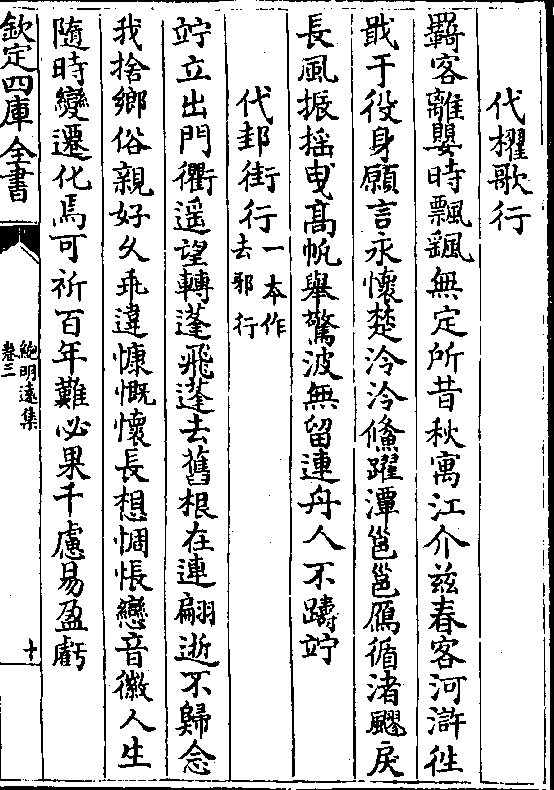 代櫂歌行
羇客離嬰時飄颻無定所昔秋寓江介兹春客河滸徃
戢于役身願言永懷楚泠泠鯈躍潭邕邕鴈循渚飂戾
長風振揺曳髙帆舉驚波無留連舟人不躊竚
代邽街行一本作去邪行
竚立出門衢遥望轉蓬飛蓬去舊根在連翩逝不歸念
我捨鄉俗親好久乖違慷慨懷長想惆悵戀音徽人生
隨時變遷化焉可祈百年難必果千慮易盈虧
欽定四庫全書
鮑明遠集
卷三
十